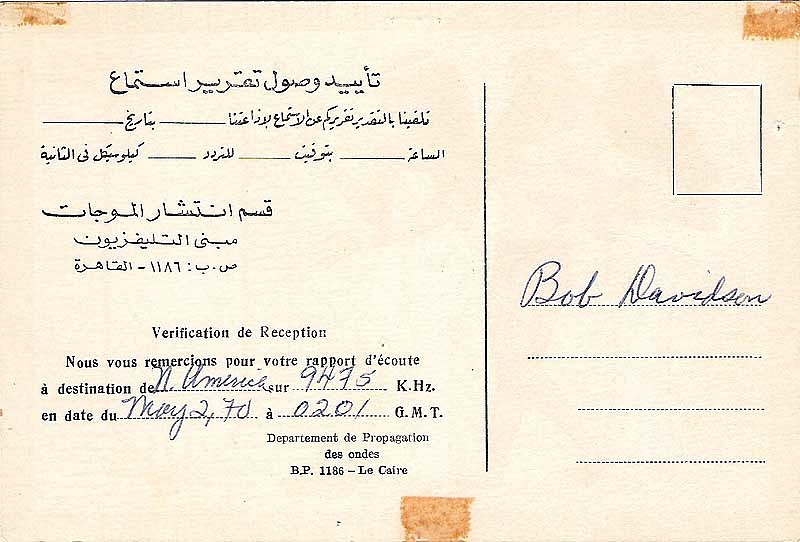 تأييد وصول تقرير استماع
تلقينا بالتقدير تقريركم عن الاستماع لإذاعتنا ـــــــ بتاريخ ـــــــ
الساعة ـــــــ بتوقيت ـــــــ للتردد ـــــــ كيلوسيكل فى الثانية
قسم انتشار الموجات
مبنى التليفزيون
ص.ب: ١١٨٦ - القاهرة
Verification de Reception
Nous vous remercions pour votre rapport d'écoute
à destination de N. America sur 9475 K.Hz.
en date du May 2, 70 à 0201 G.M.T.
Departement de Propagation
des ondes
B.P. 1186 – Le Caire
Bob Davidson